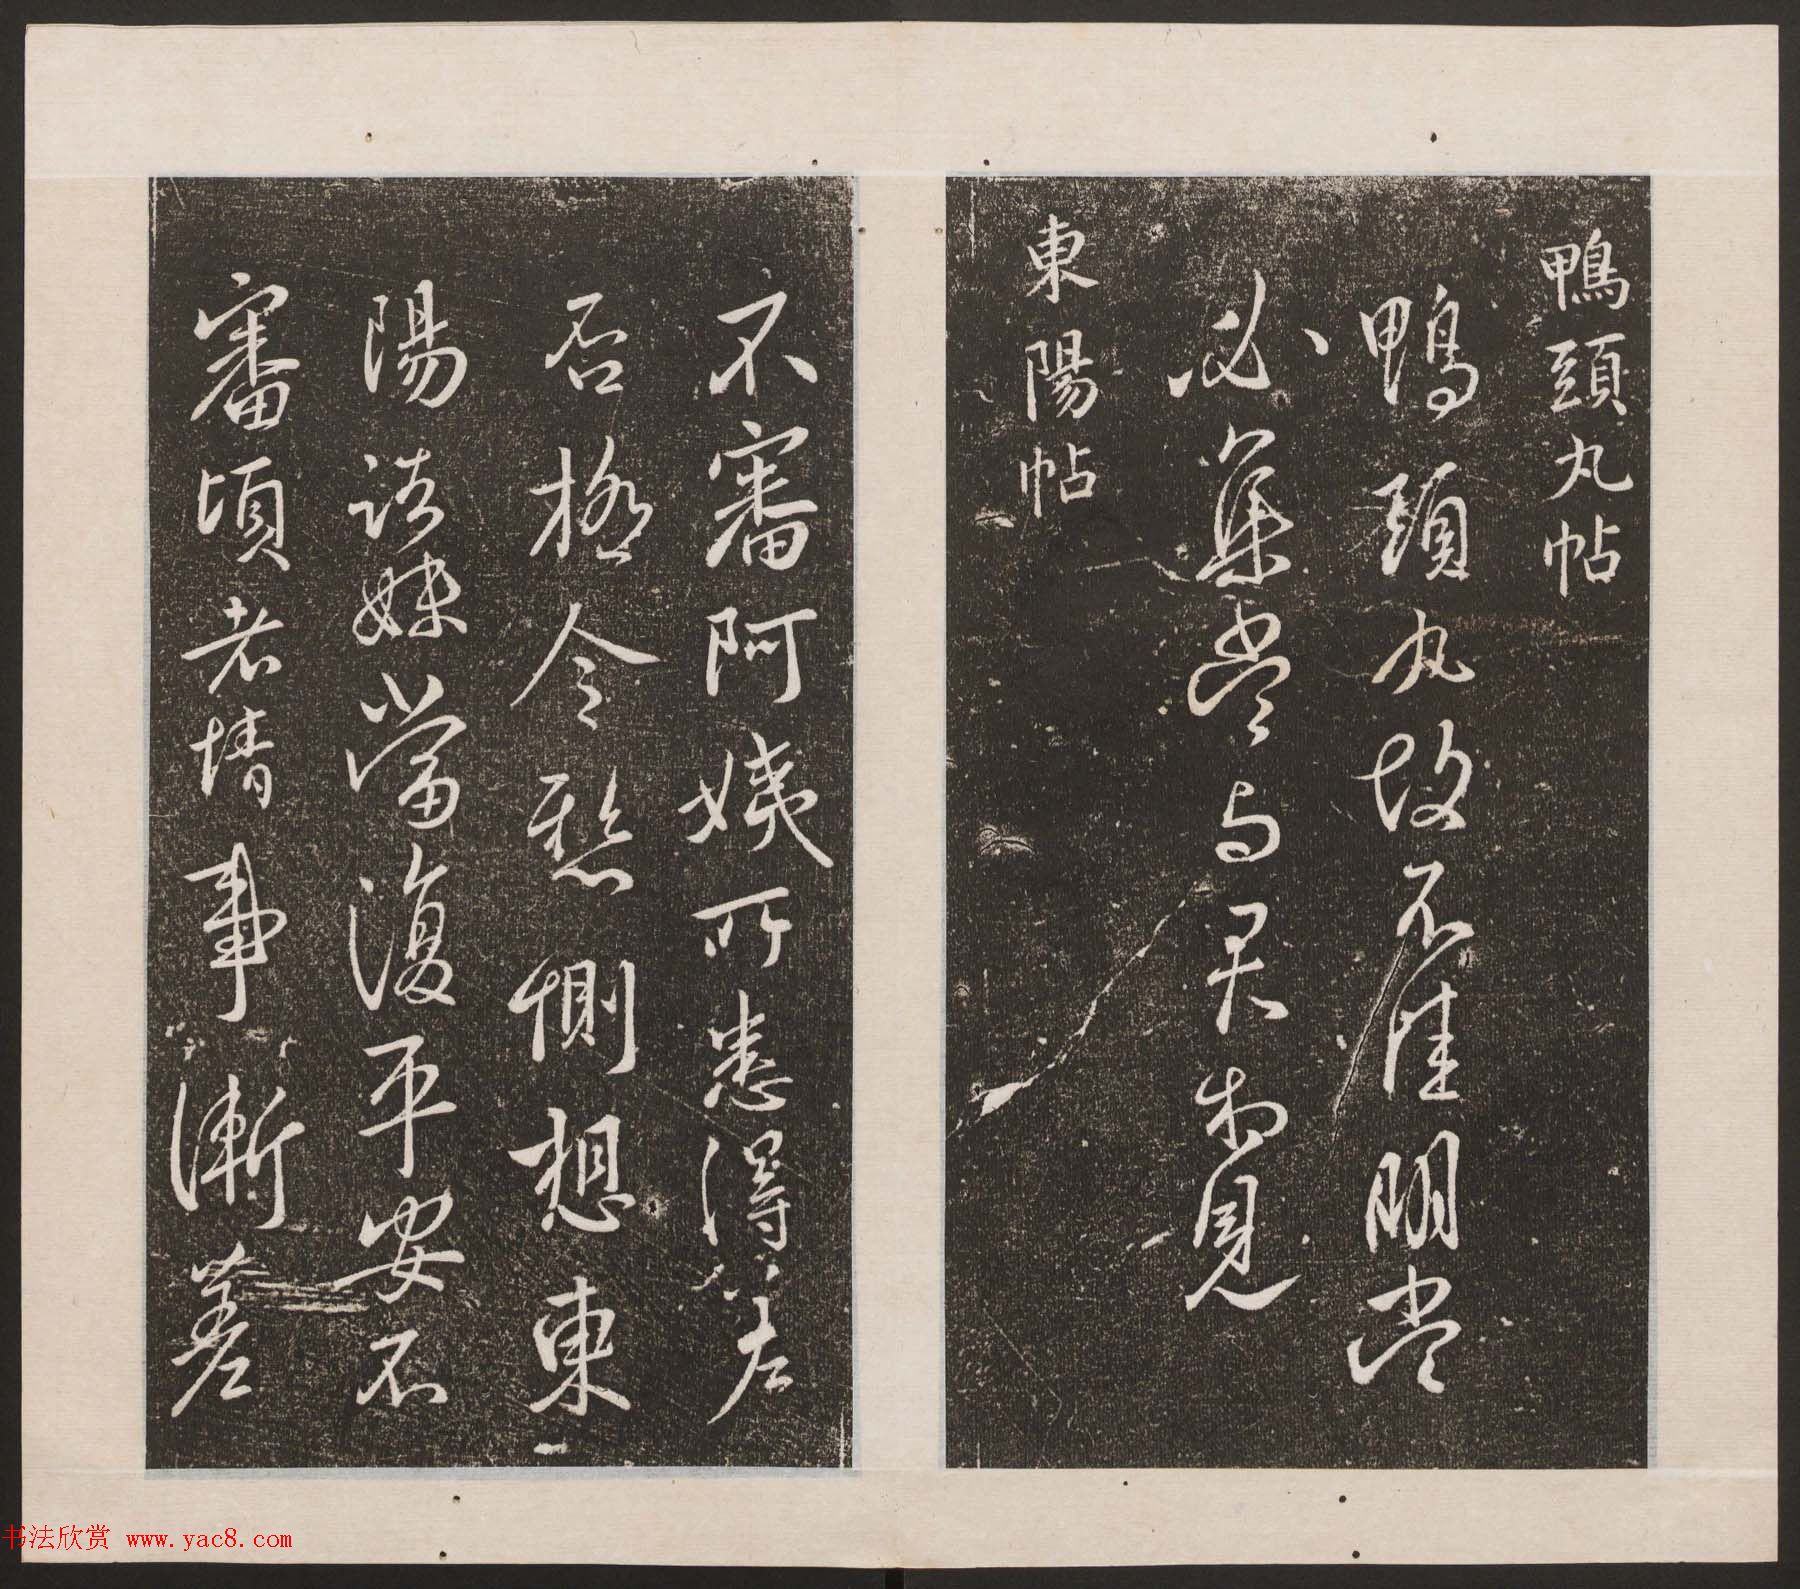 鴨頭丸帖
鴨頭丸故不佳明當
必集當與君相見
東陽帖
不審阿姨所患得差
否極令懸惻想東
陽諸妹當復平安不
審頃者情事漸差
书法欣赏 www.yac8.com